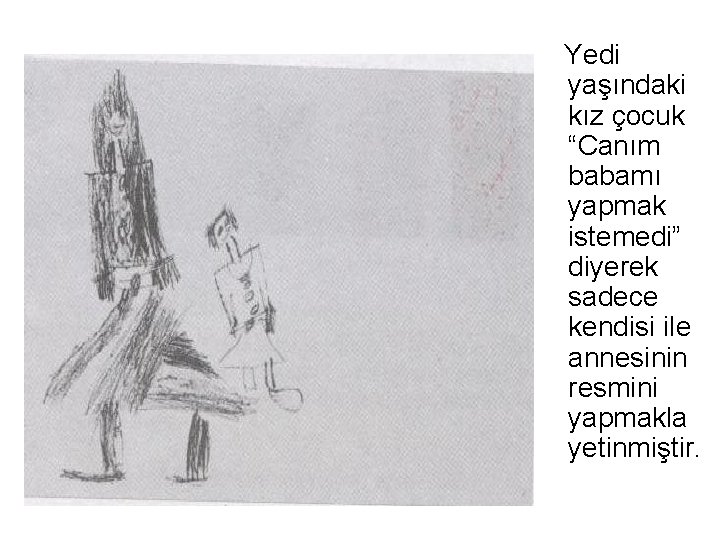 Yedi
yaşındaki
kız çocuk
“Canım
babamı
yapmak
istemedi”
diyerek
sadece
kendisi ile
annesinin
resmini
yapmakla
yetinmiştir.